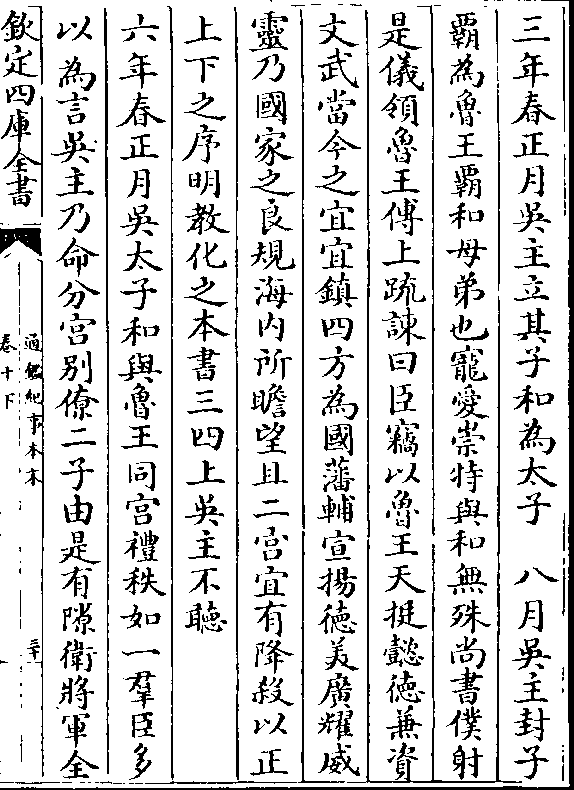 三年春正月吳主立其子和為太子　八月吳主封子
霸為魯王霸和母弟也寵愛崇特與和無殊尚書僕射
是儀領魯王傅上疏諫曰臣竊以魯王天挺懿德兼資
文武當今之宜宜鎮四方為國藩輔宣揚德美廣耀威
靈乃國家之良規海內所瞻望且二宮宜有降殺以正
上下之序明教化之本書三四上吳主不聽
六年春正月吳太子和與魯王同宮禮秩如一羣臣多
以為言吳主乃命分宮別僚二子由是有隙衛將軍全
欽定四庫全書
通鑑紀事本末
卷十下